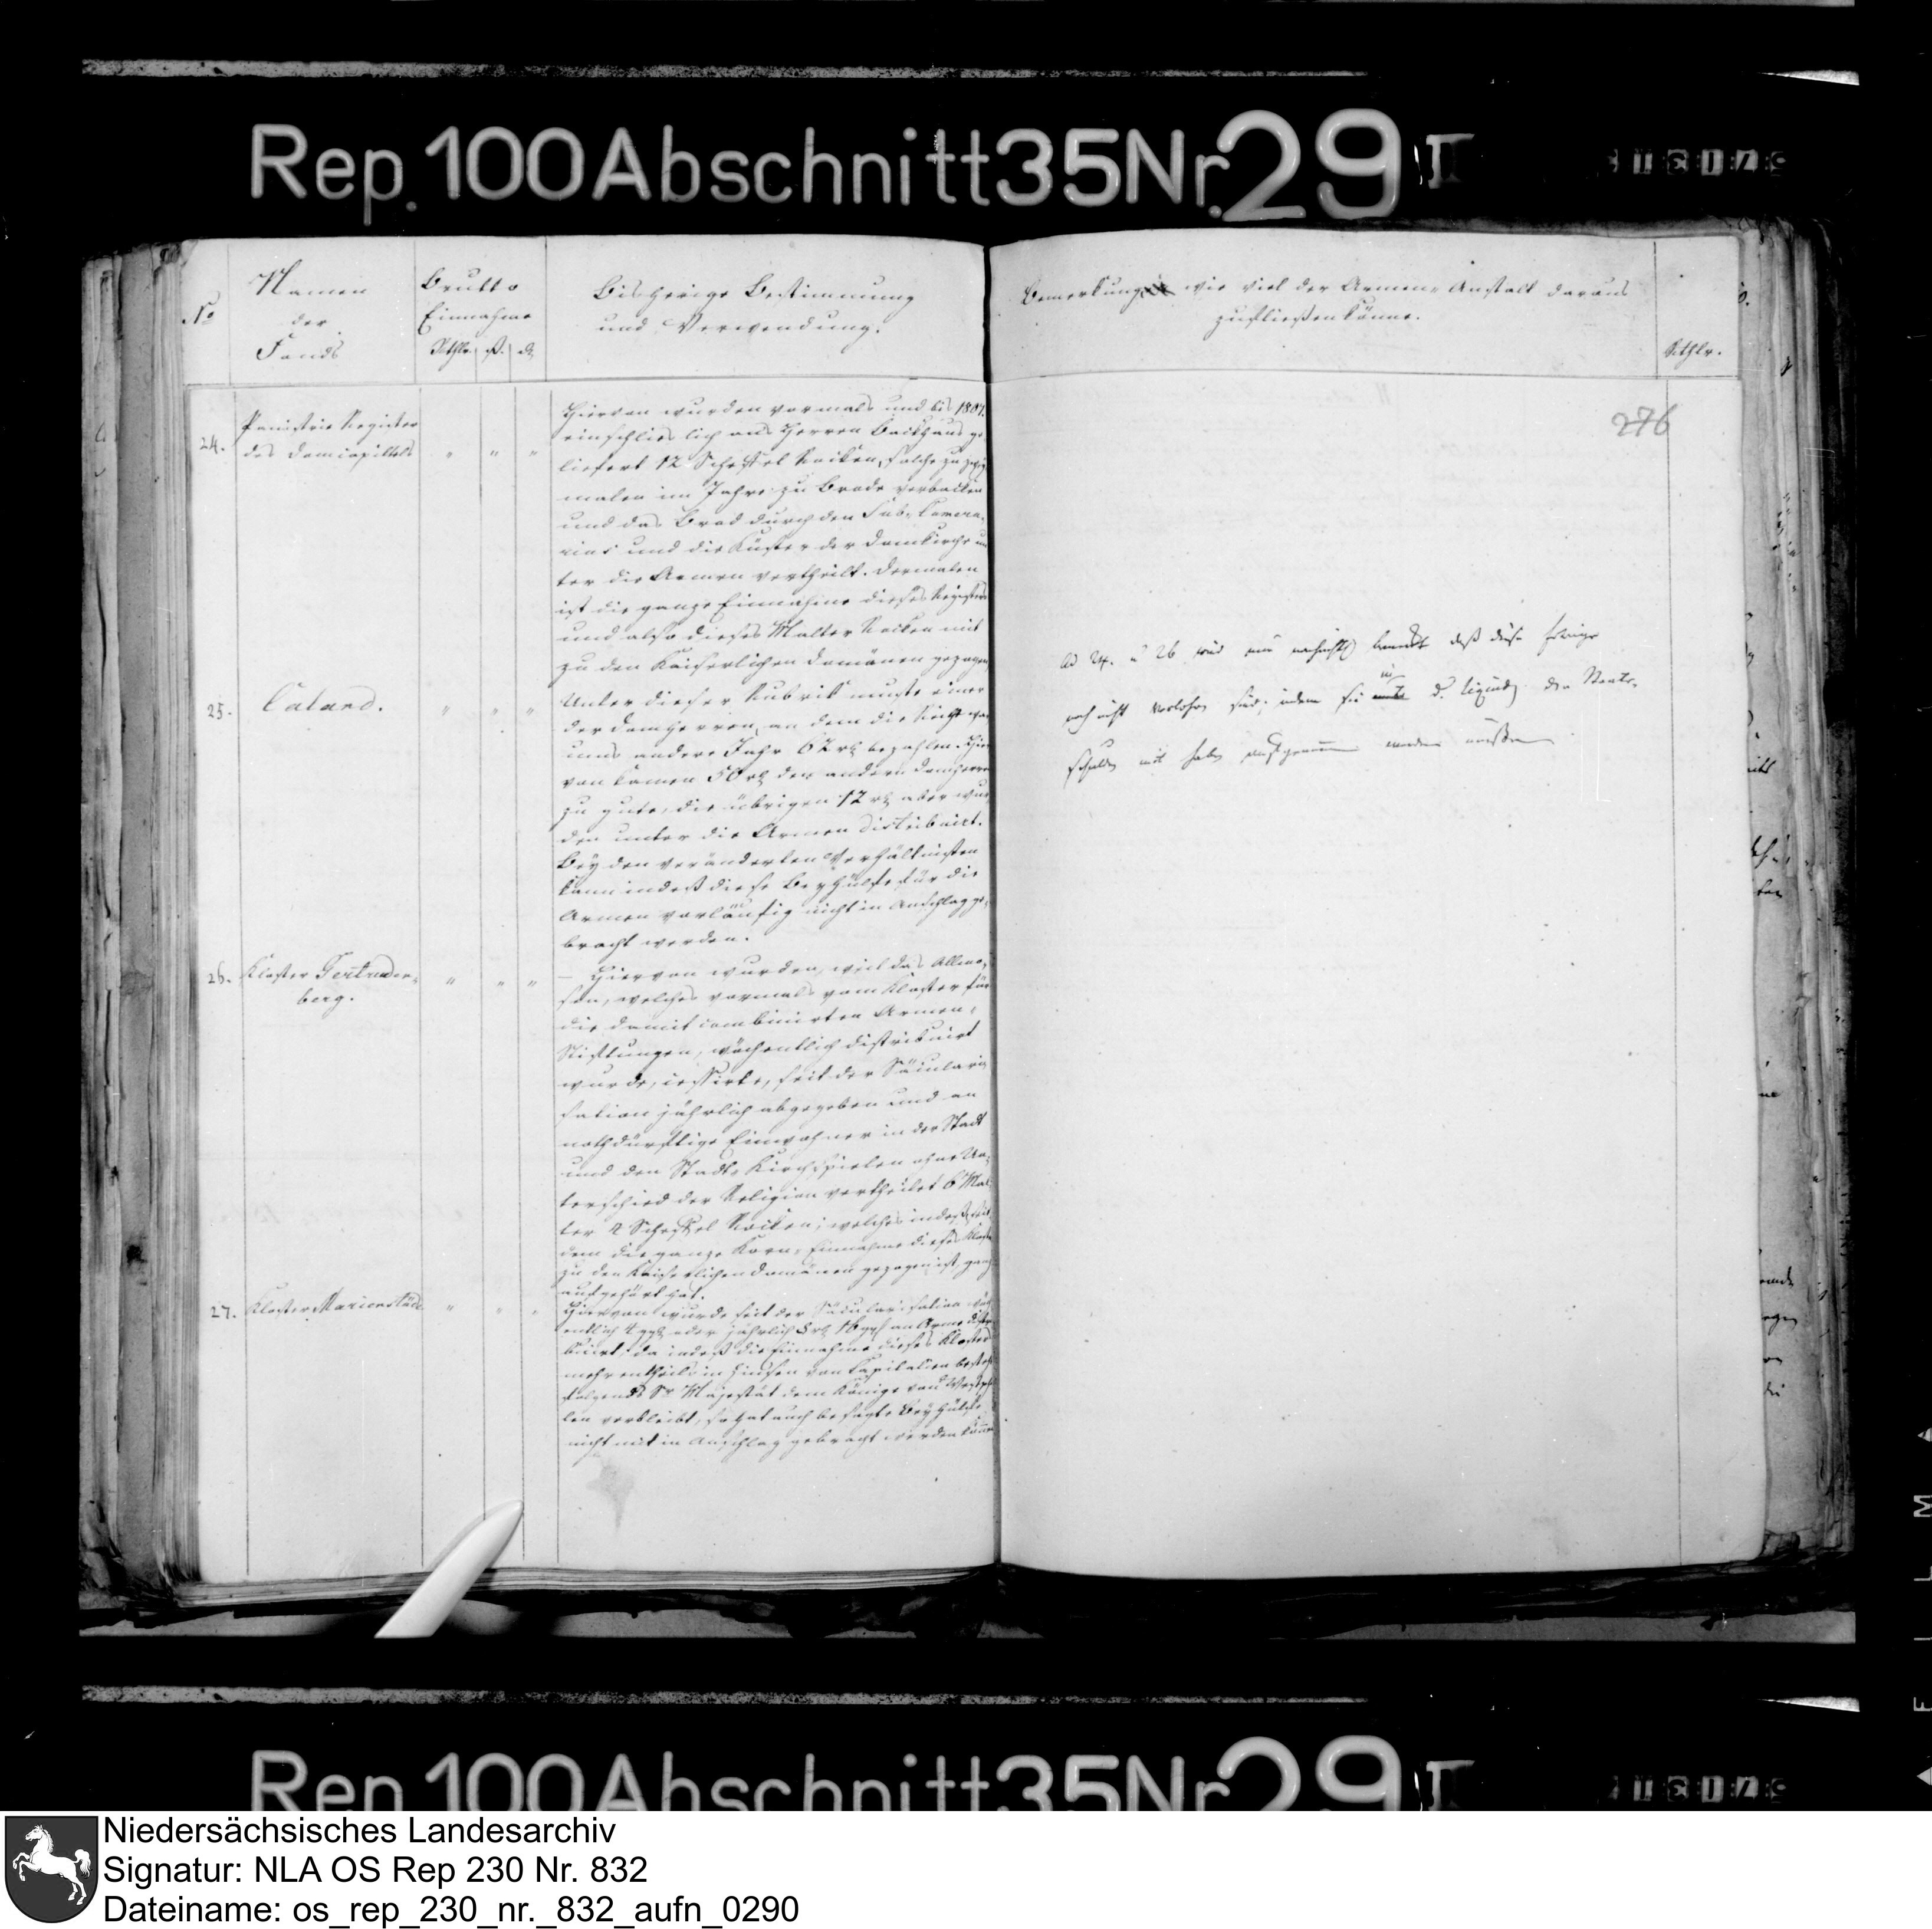 Rep. 100 Abschnitt 35 Nr. 29 I
No
Namen
der
Fonds
Brutto
Einnahme
Rthlr. ß. d
Bisherige Bestimmung
und Verwendung.
24.
Panistrie Register
des Domcapittels
" " "
Hiervon wurden vormals und bis 1807.
einschlieslich ans Herren Backhaus ge-
liefert 12 Scheffel Rocken, solche zu
malen im Jahre zu Brode verbacken
und das Brod durch den Sub-Camera-
rius und die Küster der Domkirche un-
ter die Armen vertheilt. Dermalen
ist die ganze Einnahme dieses Registers
und also dieses Malter Rocken mit
zu den Kaiserlichen Domänen gezogen
25.
Caland.
" " "
Unter dieser Rubrik muste einer
der Domherren, an dem die Reihe war
ums andere Jahr 62 rt bezahlen. Hier-
von kamen 50 rt den andern Domherren
zu gute, die übrigen 12 rt aber wur-
den unter die Armen distribuirt.
Bey den veränderten Verhältnissen
kann indeß diese Beyhülfe für die
Armen vorläufig nicht in Anschlag ge-
bracht werden.
26.
Kloster Gertruden-
berg.
" " "
Hiervon wurden, weil das Allmo-
sen, welches vormals vom Kloster für
die damit combinirten Armen-
Stiftungen, wöchentlich distribuirt
wurde, cessirte, seit der Säculari-
sation jährlich abgegeben und an
nothdürftige Einwohner in der Stadt
und den Stadt-Kirchspielen ohne Un-
terschied der Religion vertheilet 6 Mal-
ter 2 Scheffel Rocken; welches indeß, seit
dem die ganze Korn-Einnahme dieses Klosters
zu den Kaiserlichen Domänen gezogen ist, ganz
aufgehört hat.
27.
Kloster Marienstäde
" " "
Hiervon wurde seit der Säcularisation wöch-
entlich 4 ggl oder jährlich 8 rt 16 ggl an Arme distri-
buirt; da indeß die Einnahme dieses Klosters
mehrentheils in Zinsen von Kapitalien besteht
folgends Sr. Majestät dem Könige von Westpha-
len verbleibt, so hat auch besagte Beyhülfe
nicht mit in Anschlag gebracht werden können
Bemerkung wie viel der Armen-Anstalt daraus
zufließen könne.
Rthlr.
276
Ad 24. u 26 wird nur bemerkt daß diese
noch nicht verlohren sind; indem sie in d. der Staats-
schulden mit haben aufgenommen werden müßen
Rep. 100 Abschnitt 35 Nr. 29 I
Niedersächsisches Landesarchiv
Signatur: NLA OS Rep 230 Nr. 832
Dateiname: os_rep_230_nr._832_aufn_0290